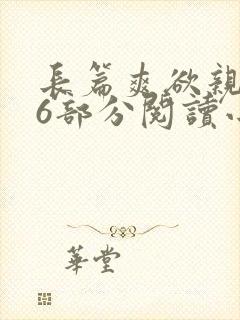 長篇爽欲親
6部分閱讀
華堂